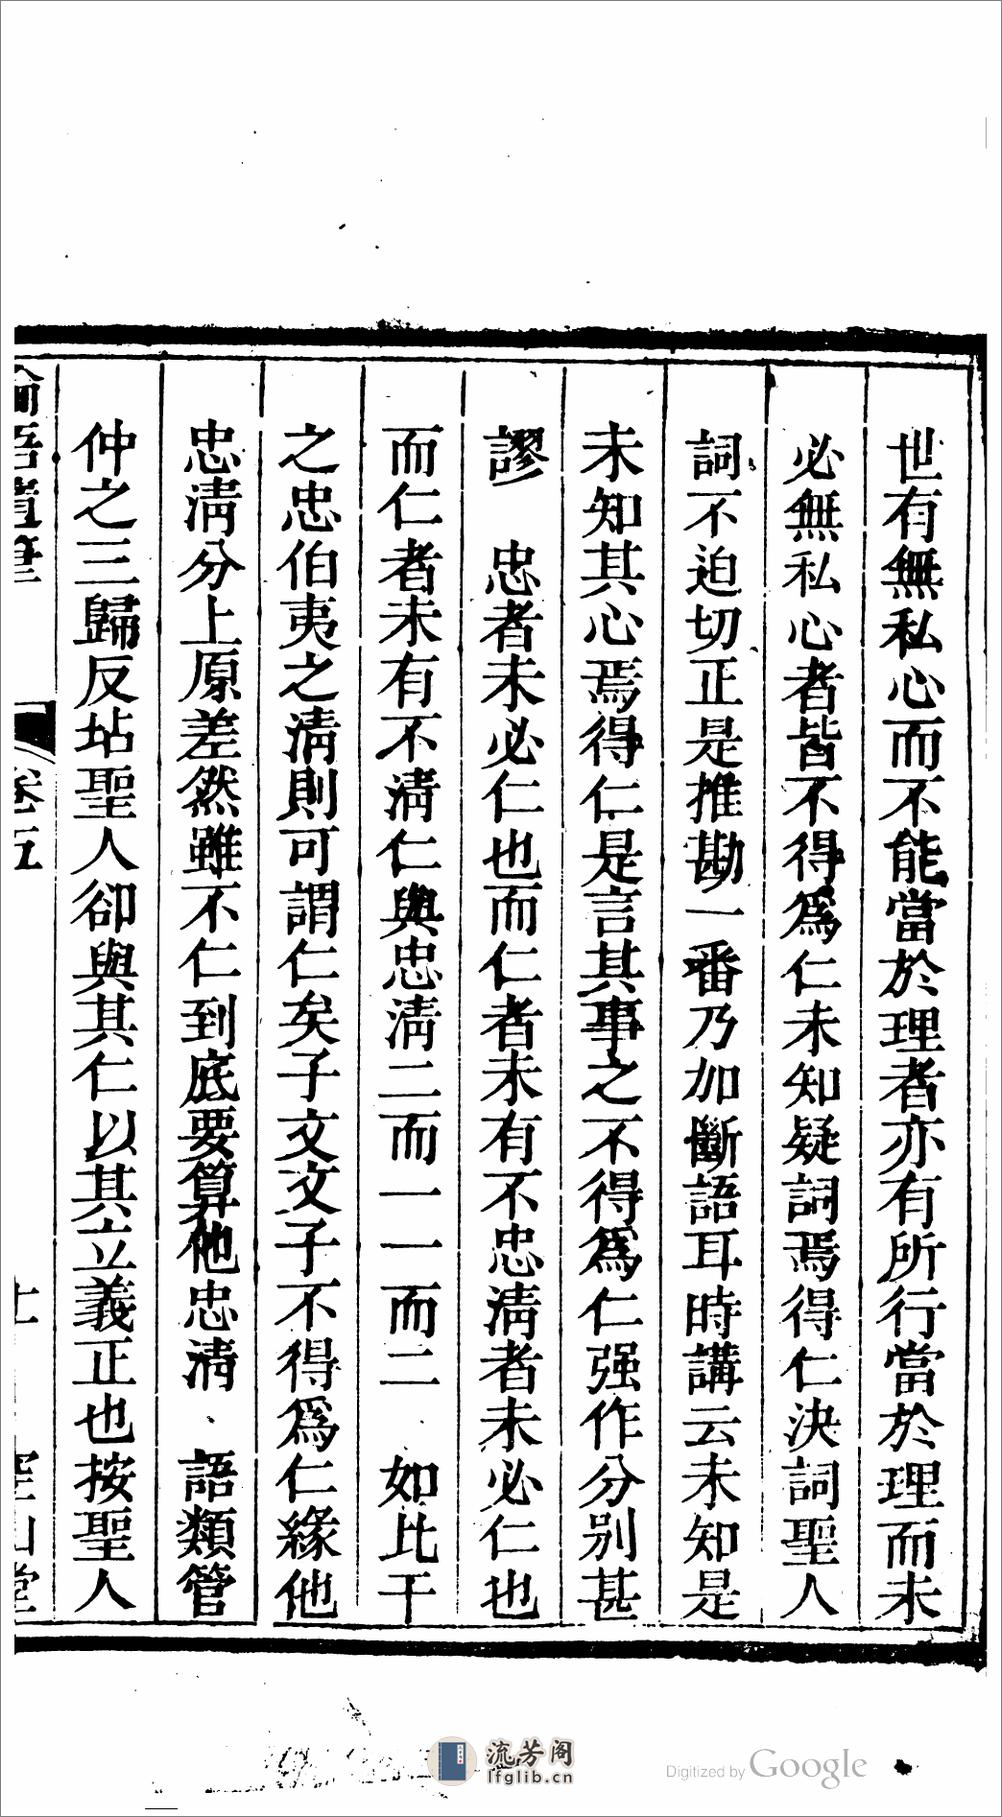 世有無私心而不能當於理者亦有所行當於理而未
必無私心者皆不得爲仁未知疑詞焉得仁決詞聖人
詞不迫切正是推勘一番乃加斷語耳時講云未知是
未知其心焉得仁是言其事之不得爲仁强作分别甚
謬　忠者未必仁也而仁者未有不忠淸者未必仁也
而仁者未有不淸仁與忠淸二而一一而二　如比干
之忠伯夷之淸則可謂仁矣子文文子不得爲仁緣他
忠淸分上原差然雖不仁到底要算他忠淸　語類管
仲之三歸反坫聖人卻與其仁以其立義正也按聖人
卷五
流芳阁
lfglib.cn
Digitized by Google